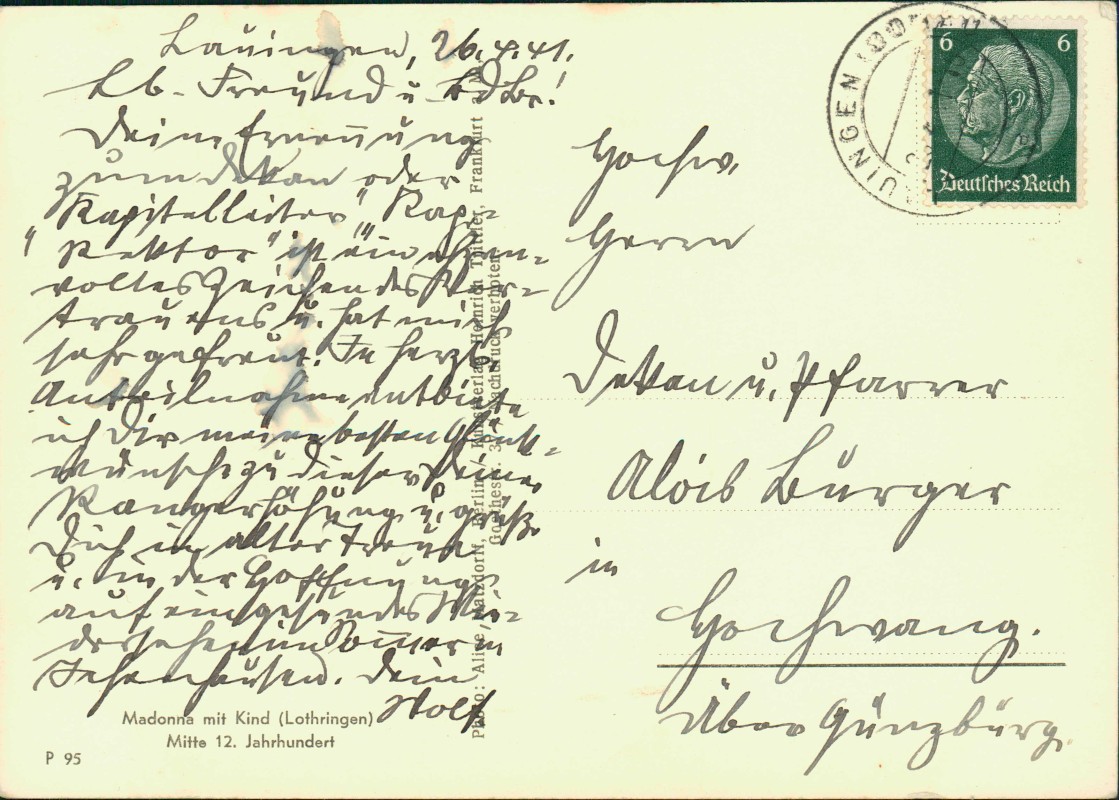 Lauingen, 26.4.41.
Lb. Freund u. Bdbr.!
Deine Ernennung
zum Dekan oder
"Kapitelleiter", Kap-
"Rektor" ist ein ehren-
volles Zeichen des Ver-
trauens u. hat mich
sehr gefreut. In herzl.
Anteilnahme entbiete
ich Dir meine besten Glück-
wünsche zu dieser Deiner
Rangerhöhung u. grüße
Dich in alter Treue
u. in der Hoffnung
auf ein gesundes Wie-
dersehen im Sommer in
Ichenhausen. Dein
Wolf
Madonna mit Kind (Lothringen)
Mitte 12. Jahrhundert
P 95
Photo: Alice Matzdorff, Berlin / Kunstverlag Heinrich Trittler, Frankfurt a.
Goethestr. 3 Nachdruck verboten
UINGEN (DO
6 6
Deutsches Reich
Hochw.
Herrn
Dekan u. Pfarrer
Alois Burger
in
Hochwang.
Über Günzburg.